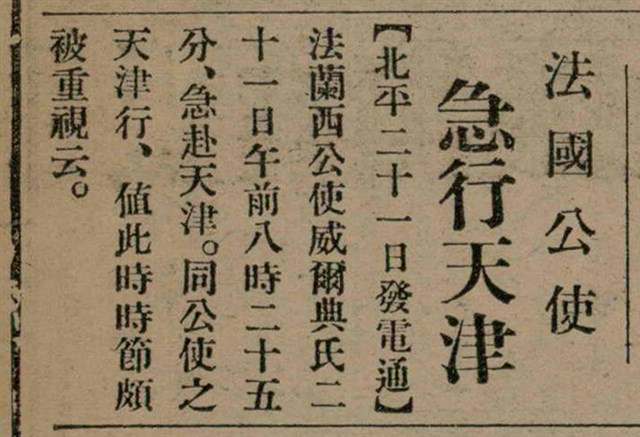 法國公使
急行天津
【北平二十一日發電通】
法蘭西公使威爾典氏二
十一日午前八時二十五
分、急赴天津。同公使之
天津行、值此時時節頗
被重視云。